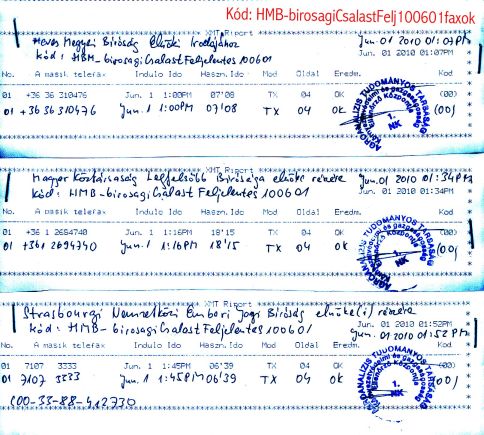 Kód: HMB-birosagiCsalastFelj100601faxok
XMT Riport
Heves Megyei Bíróság Elnöki Irodájához
Jun. 01 2010 01:07PM
kód: HBM-birosagiCsalastFeljelentes100601
Jun. 01 2010 01:07PM
No. A masik telefax Indulo Ido Haszn.Ido Mod Oldal Eredm. Kód
01 +36 36 310476 Jun. 1 1:00PM 07'08 TX 04 OK
01 +36 36 310476 Jun. 1 1:00PM 07'08 TX 04 OK (00)
AGROANALIZIS TUDOMANYOS TARSASAG
1.
NK
XMT Riport
Magyar Köztársaság Legfelsőbb Bírósága elnöke részére
Jun. 01 2010 01:34PM
Kód: HMB-birosagiCsalastFeljelentes100601
Jun. 01 2010 01:34PM
No. A masik telefax Indulo Ido Haszn.Ido Mod Oldal Eredm.
01 +36 1 2684740 Jun. 1 1:16PM 18'15 TX 04 OK
01 +361 2694740 Jun. 1 1:16PM 18'15 TX 04 OK (00)
1.
NK
XMT Riport
Strasbourgi Nemzetközi Emberi Jogi Bíróság elnöke(i) részére
Jun. 01 2010 01:52PM
kód: HMB-birosagiCsalastFeljelentes100601
Jun. 01 2010 01:52PM
No. A masik telefax Indulo Ido Haszn.Ido Mod Oldal Eredm.
01 7107 3333 Jun. 1 1:45PM 06'39 TX 04 OK
01 7107 3333 Jun. 1 1:45PM 06'39 TX 04 OK (00)
(00-33-88-412730
1.
NK